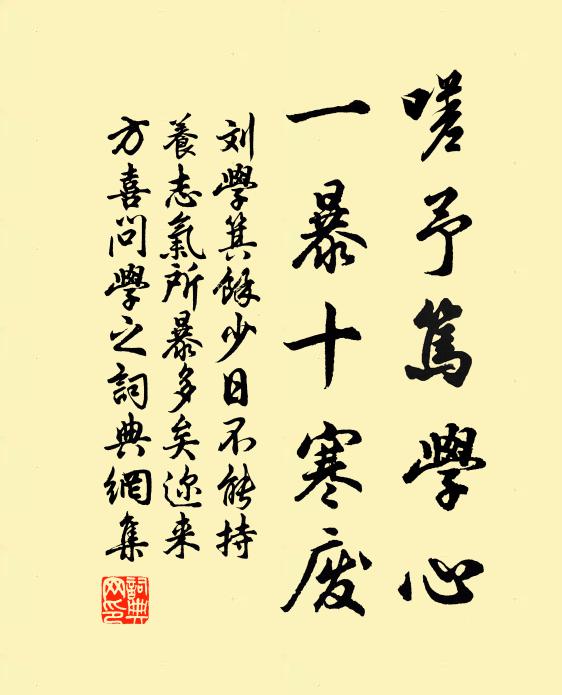 嗟予篤學心
一暴十寒廢
刘學箕餘少日不能持
養志氣所暴多矣迩来
方喜問學之詞典網集
詞典
网印